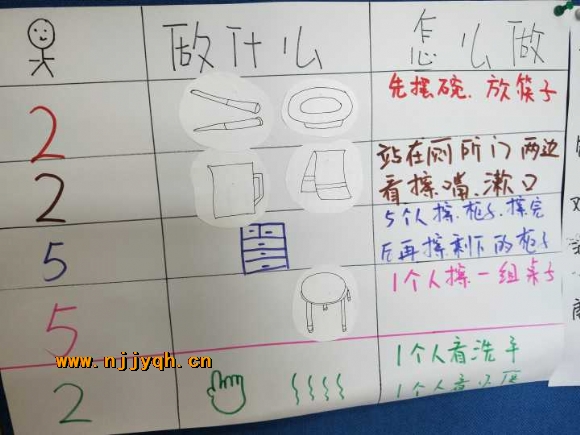 做什么 怎么做
2 先摆碗、放筷子
2 站在厕所门两边
看擦嘴、漱口
5 5个人擦柜子、擦完
后再擦剩下的柜子
5 1个人擦一组桌子
www.njjyqh.cn
2 1个人看洗手
1个人看